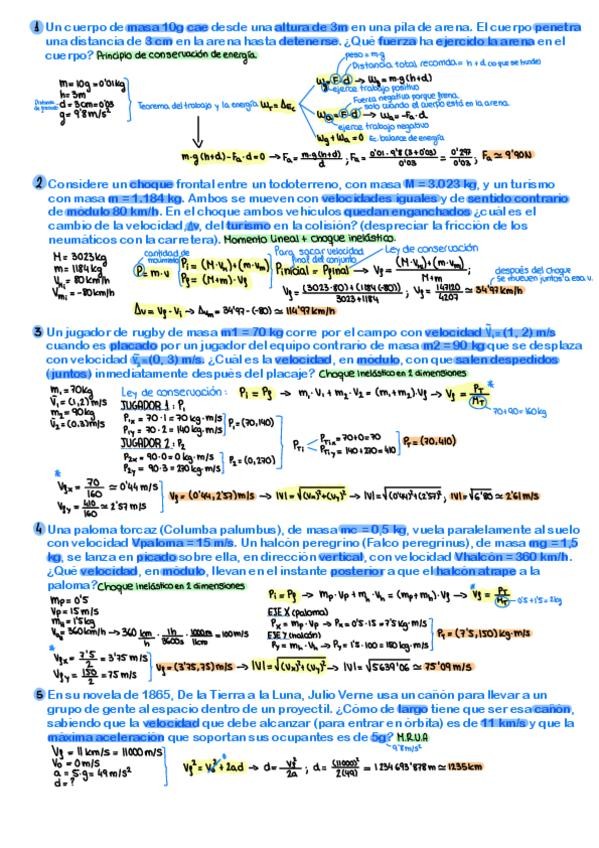 1 Un cuerpo de masa 10g cae desde una altura de 3m en una pila de arena. El cuerpo penetra
una distancia de 3 cm en la arena hasta detenerse. ¿Qué fuerza ha ejercido la arena en el
cuerpo? Principio de conservación de energía.
peso = m·g
Distancia total recorrida = h + d (lo que se hunde)
m = 10g = 0'01kg
h = 3m
d = 3cm = 0'03
g = 9'8 m/s²
Teorema del trabajo y la energía Wₜ = ΔEc
Wg = F · d → Wg = m·g (h+d)
ejerce trabajo positivo
Fuerza negativa porque frena,
solo cuando el cuerpo está en la arena.
Wa = F · d → Wa = -Fa · d
ejerce trabajo negativo
Wg + Wa = 0 Ec. balance de energía
m·g (h+d) - Fa·d = 0 → Fa = m·g(h+d)/d ; Fa = 0'01·9'8 (3+0'03)/0'03 = 0'297/0'03 ; Fa ≃ 9'90N
2 Considere un choque frontal entre un todoterreno, con masa M = 3.023 kg, y un turismo
con masa m = 1.184 kg. Ambos se mueven con velocidades iguales y de sentido contrario
de módulo 80 km/h. En el choque ambos vehículos quedan enganchados ¿cuál es el
cambio de la velocidad, Δv, del turismo en la colisión? (despreciar la fricción de los
neumáticos con la carretera). Momento lineal + choque inelástico.
M = 3023kg
m = 1184kg
V_Mi = 80 km/h
V_mi = -80 km/h
cantidad de movimiento
P = m·v
Pi = (M·V_M) + (m·v_m)
Pf = (M+m)·Vf
Para sacar velocidad final del conjunto
Ley de conservación
Pinicial = Pfinal → Vf = (M·V_M)+(m·V_m)/M+m ;
Vf = (3023·80)+(1184(-80))/3023+1184 ; Vf = 147120/4207 ≃ 34'97 km/h
después del choque se mueven juntos a esa v.
Δv = Vf - Vi → ΔVm = 34'97 - (-80) ≃ 114'97 km/h
3 Un jugador de rugby de masa m1 = 70 kg corre por el campo con velocidad v⃗₁= (1, 2) m/s
cuando es placado por un jugador del equipo contrario de masa m2 = 90 kg que se desplaza
con velocidad v⃗₂=(0, 3) m/s. ¿Cuál es la velocidad, en módulo, con que salen despedidos
(juntos) inmediatamente después del placaje? Choque inelástico en 2 dimensiones
m₁ = 70kg
v⃗₁ = (1,2) m/s
m₂ = 90kg
v⃗₂ = (0,3) m/s
Ley de conservación: Pi = Pf → m₁·V₁ + m₂·V₂ = (m₁+m₂)·Vf → Vf = P_T/M_T *
70+90 = 160kg
JUGADOR 1: P₁
P₁x = 70·1 = 70 kg·m/s
P₁y = 70·2 = 140 kg·m/s
P₁ = (70,140)
JUGADOR 2: P₂
P₂x = 90·0 = 0 kg·m/s
P₂y = 90·3 = 270 kg·m/s
P₂ = (0,270)
P_Ti
P_Tix = 70+0 = 70
P_Tiy = 140+270 = 410
P_T = (70,410)
*
Vfx = 70/160 ≃ 0'44 m/s
Vfy = 410/160 ≃ 2'57 m/s
Vf = (0'44, 2'57) m/s → |V| = √(Vx)²+(Vy)² → |V| = √(0'44)²+(2'57)² ; |V| = √6'80 ≃ 2'61 m/s
4 Una paloma torcaz (Columba palumbus), de masa mc = 0,5 kg, vuela paralelamente al suelo
con velocidad Vpaloma = 15 m/s. Un halcón peregrino (Falco peregrinus), de masa mg = 1,5
kg, se lanza en picado sobre ella, en dirección vertical, con velocidad Vhalcón = 360 km/h.
¿Qué velocidad, en módulo, llevan en el instante posterior a que el halcón atrape a la
paloma? Choque inelástico en 2 dimensiones
mp = 0'5
Vp = 15 m/s
mh = 1'5kg
Vh = 360 km/h → 360 km/h · 1h/3600s · 1000m/1km = 100 m/s
Pi = Pf → mp·Vp + mh·Vh = (mp+mh)·Vf → Vf = P_T/M_T *
0'5+1'5 = 2kg
EJE X (paloma)
Px = mp·Vp → Px = 0'5·15 = 7'5 kg·m/s
EJE Y (halcón)
Py = mh·Vh → Py = 1'5·100 = 150 kg·m/s
Pi = (7'5, 150) kg·m/s
*
Vfx = 7'5/2 = 3'75 m/s
Vfy = 150/2 = 75 m/s
Vf = (3'75, 75) m/s → |V| = √(Vx)²+(Vy)² → |V| = √5639'06 ≃ 75'09 m/s
5 En su novela de 1865, De la Tierra a la Luna, Julio Verne usa un cañón para llevar a un
grupo de gente al espacio dentro de un proyectil. ¿Cómo de largo tiene que ser esa cañón,
sabiendo que la velocidad que debe alcanzar (para entrar en órbita) es de 11 km/s y que la
máxima aceleración que soportan sus ocupantes es de 5g? M.R.U.A
9'8 m/s²
Vf = 11 km/s = 11000 m/s
V₀ = 0 m/s
a = 5·g = 49 m/s²
d = ?
Vf² = V₀² + 2ad → d = Vf²/2a ; d = (11000)²/2(49) = 1234693'878m ≃ 1235km